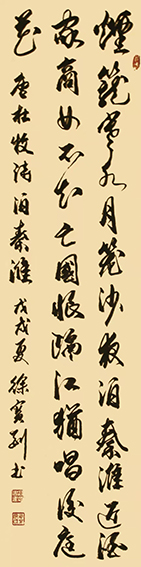 煙籠寒水月籠沙夜泊秦淮近酒
家商女不知亡國恨隔江猶唱後庭
花 唐杜牧詩泊秦淮 戊戌夏 徐寶书